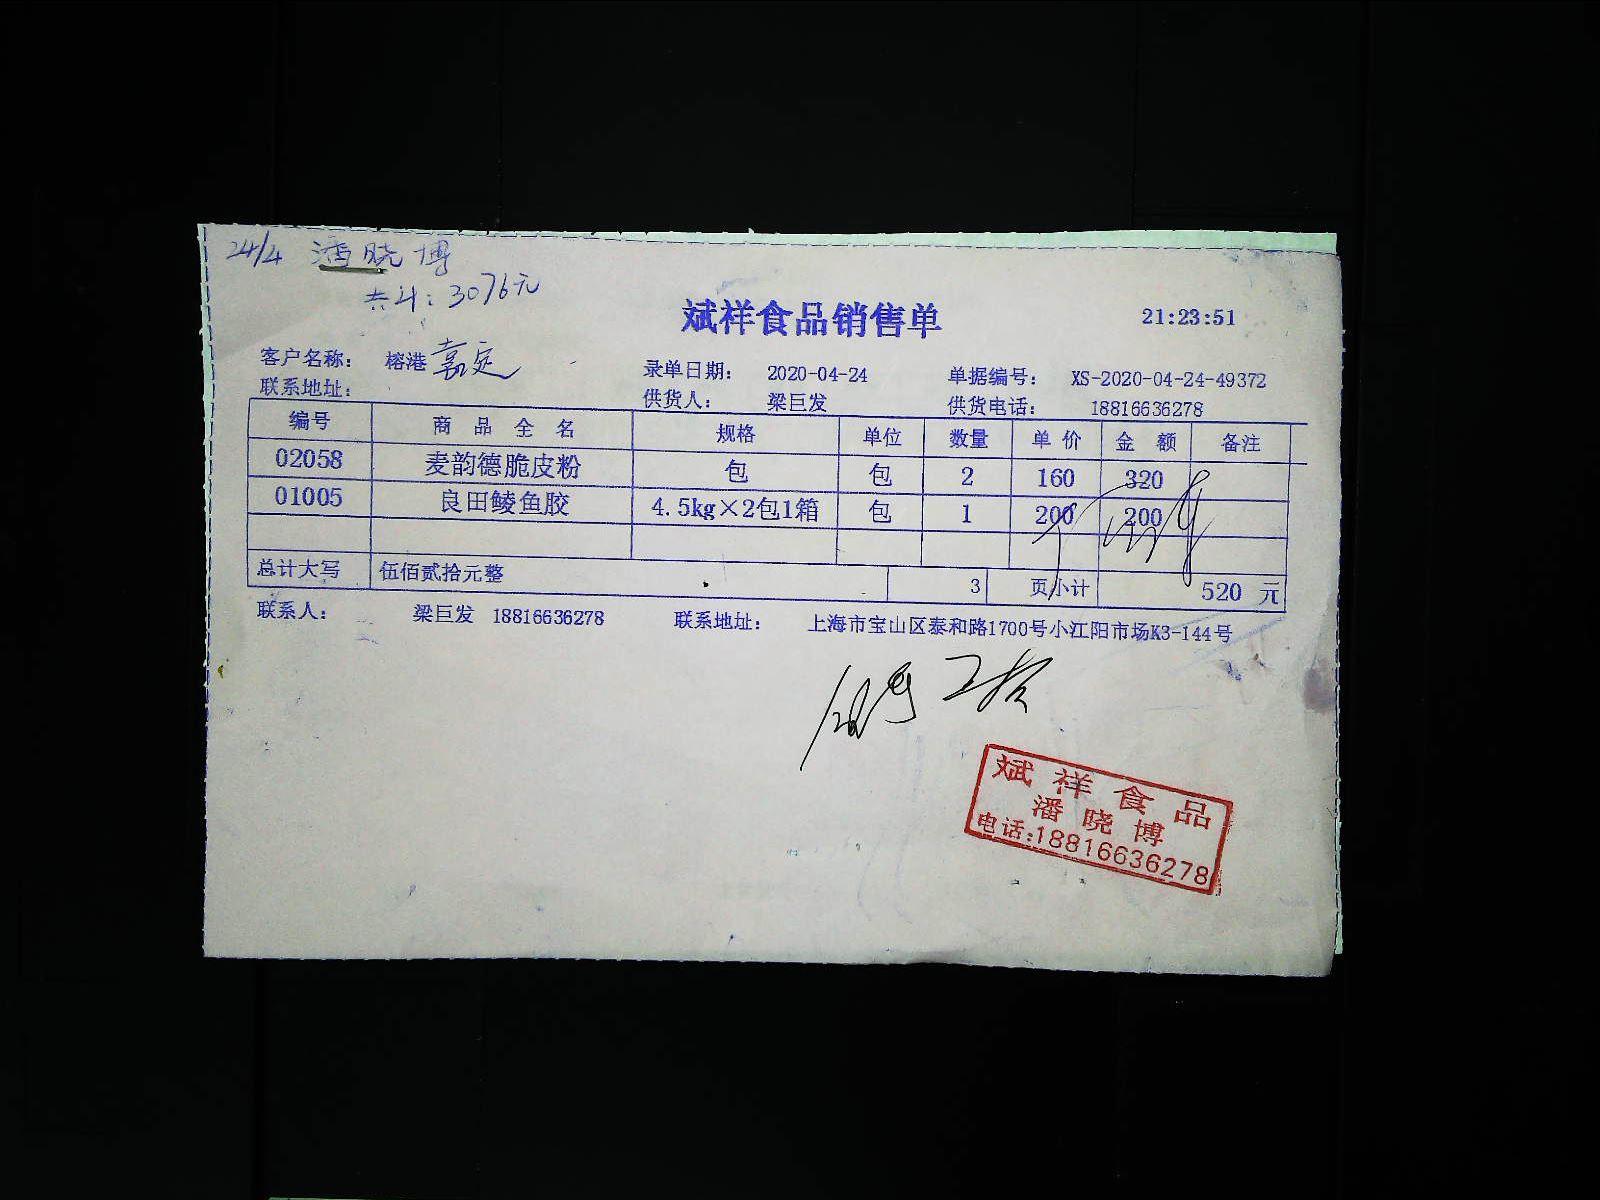 24/4 潘晓博
共计：3076元
斌祥食品销售单
21:23:51
客户名称： 榕港 嘉定 录单日期： 2020-04-24 单据编号： XS-2020-04-24-49372
联系地址： 供货人： 梁巨发 供货电话： 18816636278
编号 商品全名 规格 单位 数量 单价 金额 备注
02058 麦韵德脆皮粉 包 包 2 160 320
01005 良田鲮鱼胶 4.5kg×2包1箱 包 1 200 200
总计大写 伍佰贰拾元整 3 页小计 520 元
联系人： 梁巨发 18816636278 联系地址： 上海市宝山区泰和路1700号小江阳市场K3-144号
斌祥食品
潘晓博
电话:18816636278